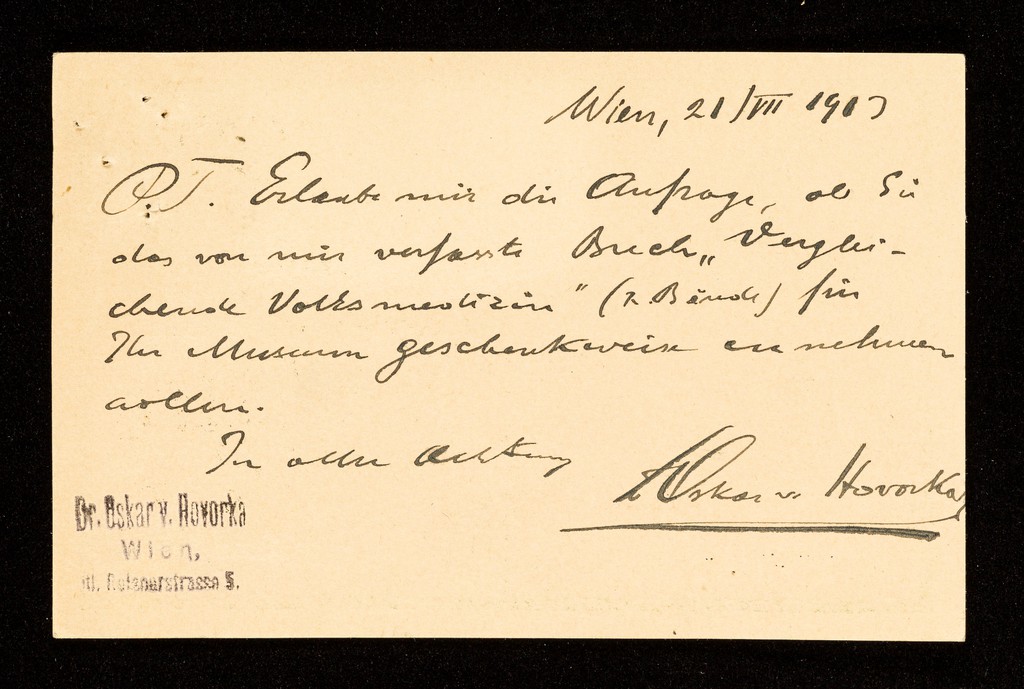 Wien, 21/VII 1913
P.T. Erlaube mir die Anfrage, ob Sie
das von mir verfasste Buch „Verglei-
chende Volksmedizin" (2. Bände) für
Ihr Museum geschenkweise annehmen
wollen.
In aller Achtung
Dr Oskar v. Hovorka
Dr. Oskar v. Hovorka
Wien,
5.